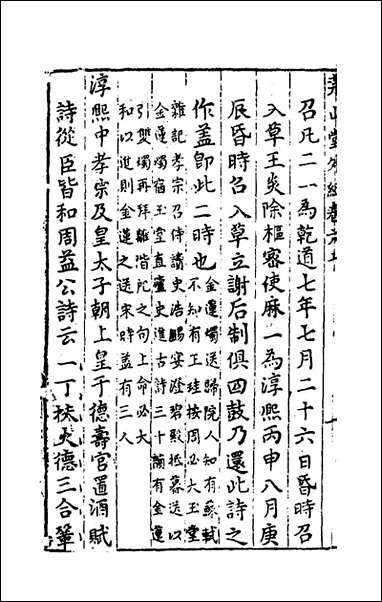 堯山堂外紀卷
召凡二一為乾道七年七月二十六日昏時召
入草王炎除樞密使麻一為淳熙丙申八月庚
辰昏時召入草立謝后制俱四鼓乃還此詩之
作蓋即此二時也
金蓮燭送歸院人知有蘇軾
不知有王珪按周必大玉堂
雜記孝宗召侍讀史浩賜宴澄碧殿抵暮送以
金蓮燭宿玉堂直廬史進古詩三十韻有金蓮
引雙燭再拜離階戺之句上命必大
和以進則金蓮之送宋時蓋有三人
淳熙中孝宗及皇太子朝上皇于德壽宮置酒賦
詩從臣皆和周益公詩云一丁扶火德三合鞏